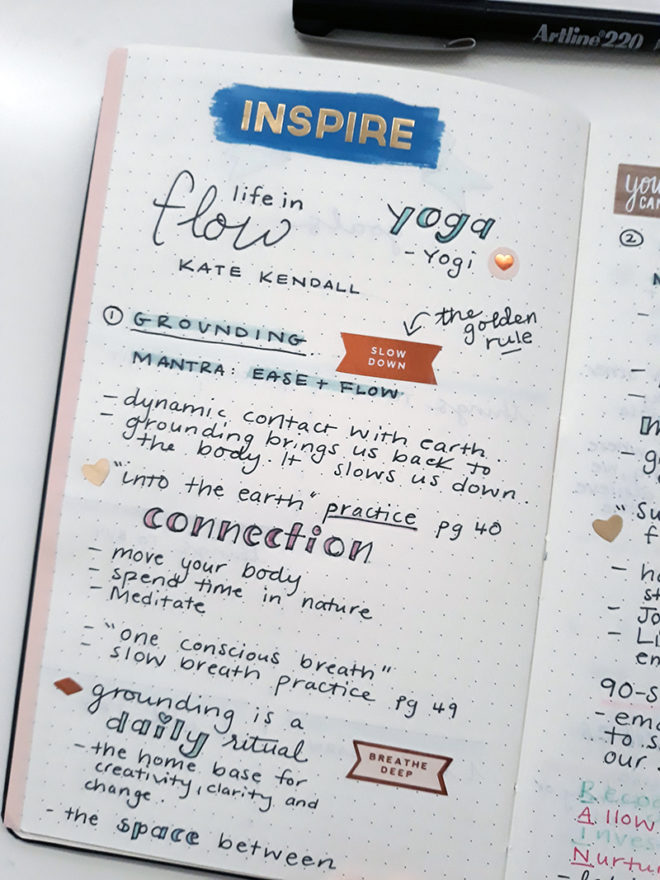 Artline 220
INSPIRE
life in
flow
yoga
- Yogi
KATE KENDALL
① GROUNDING
SLOW
DOWN
the
golden
rule
MANTRA: EASE + FLOW
- dynamic contact with earth.
- grounding brings us back to
the body. It slows us down.
"into the earth" practice pg 40
connection
- move your body
- spend time in nature
- Meditate
- "one conscious breath"
- slow breath practice pg 49
grounding is a
daily ritual
- the home base for
creativity, clarity and
change.
BREATHE
DEEP
- the space between
you
CAN
②
90-S
to s
our